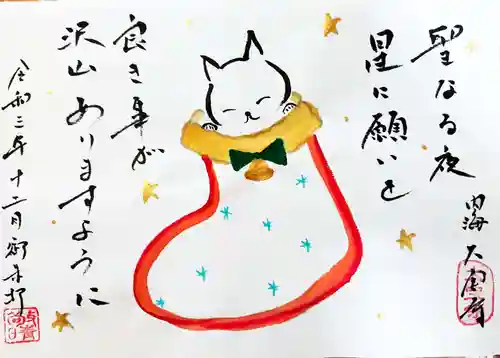 聖なる夜
星に願いを
内海 大国屋
良き事が
沢山ありますように
令和三年十二月